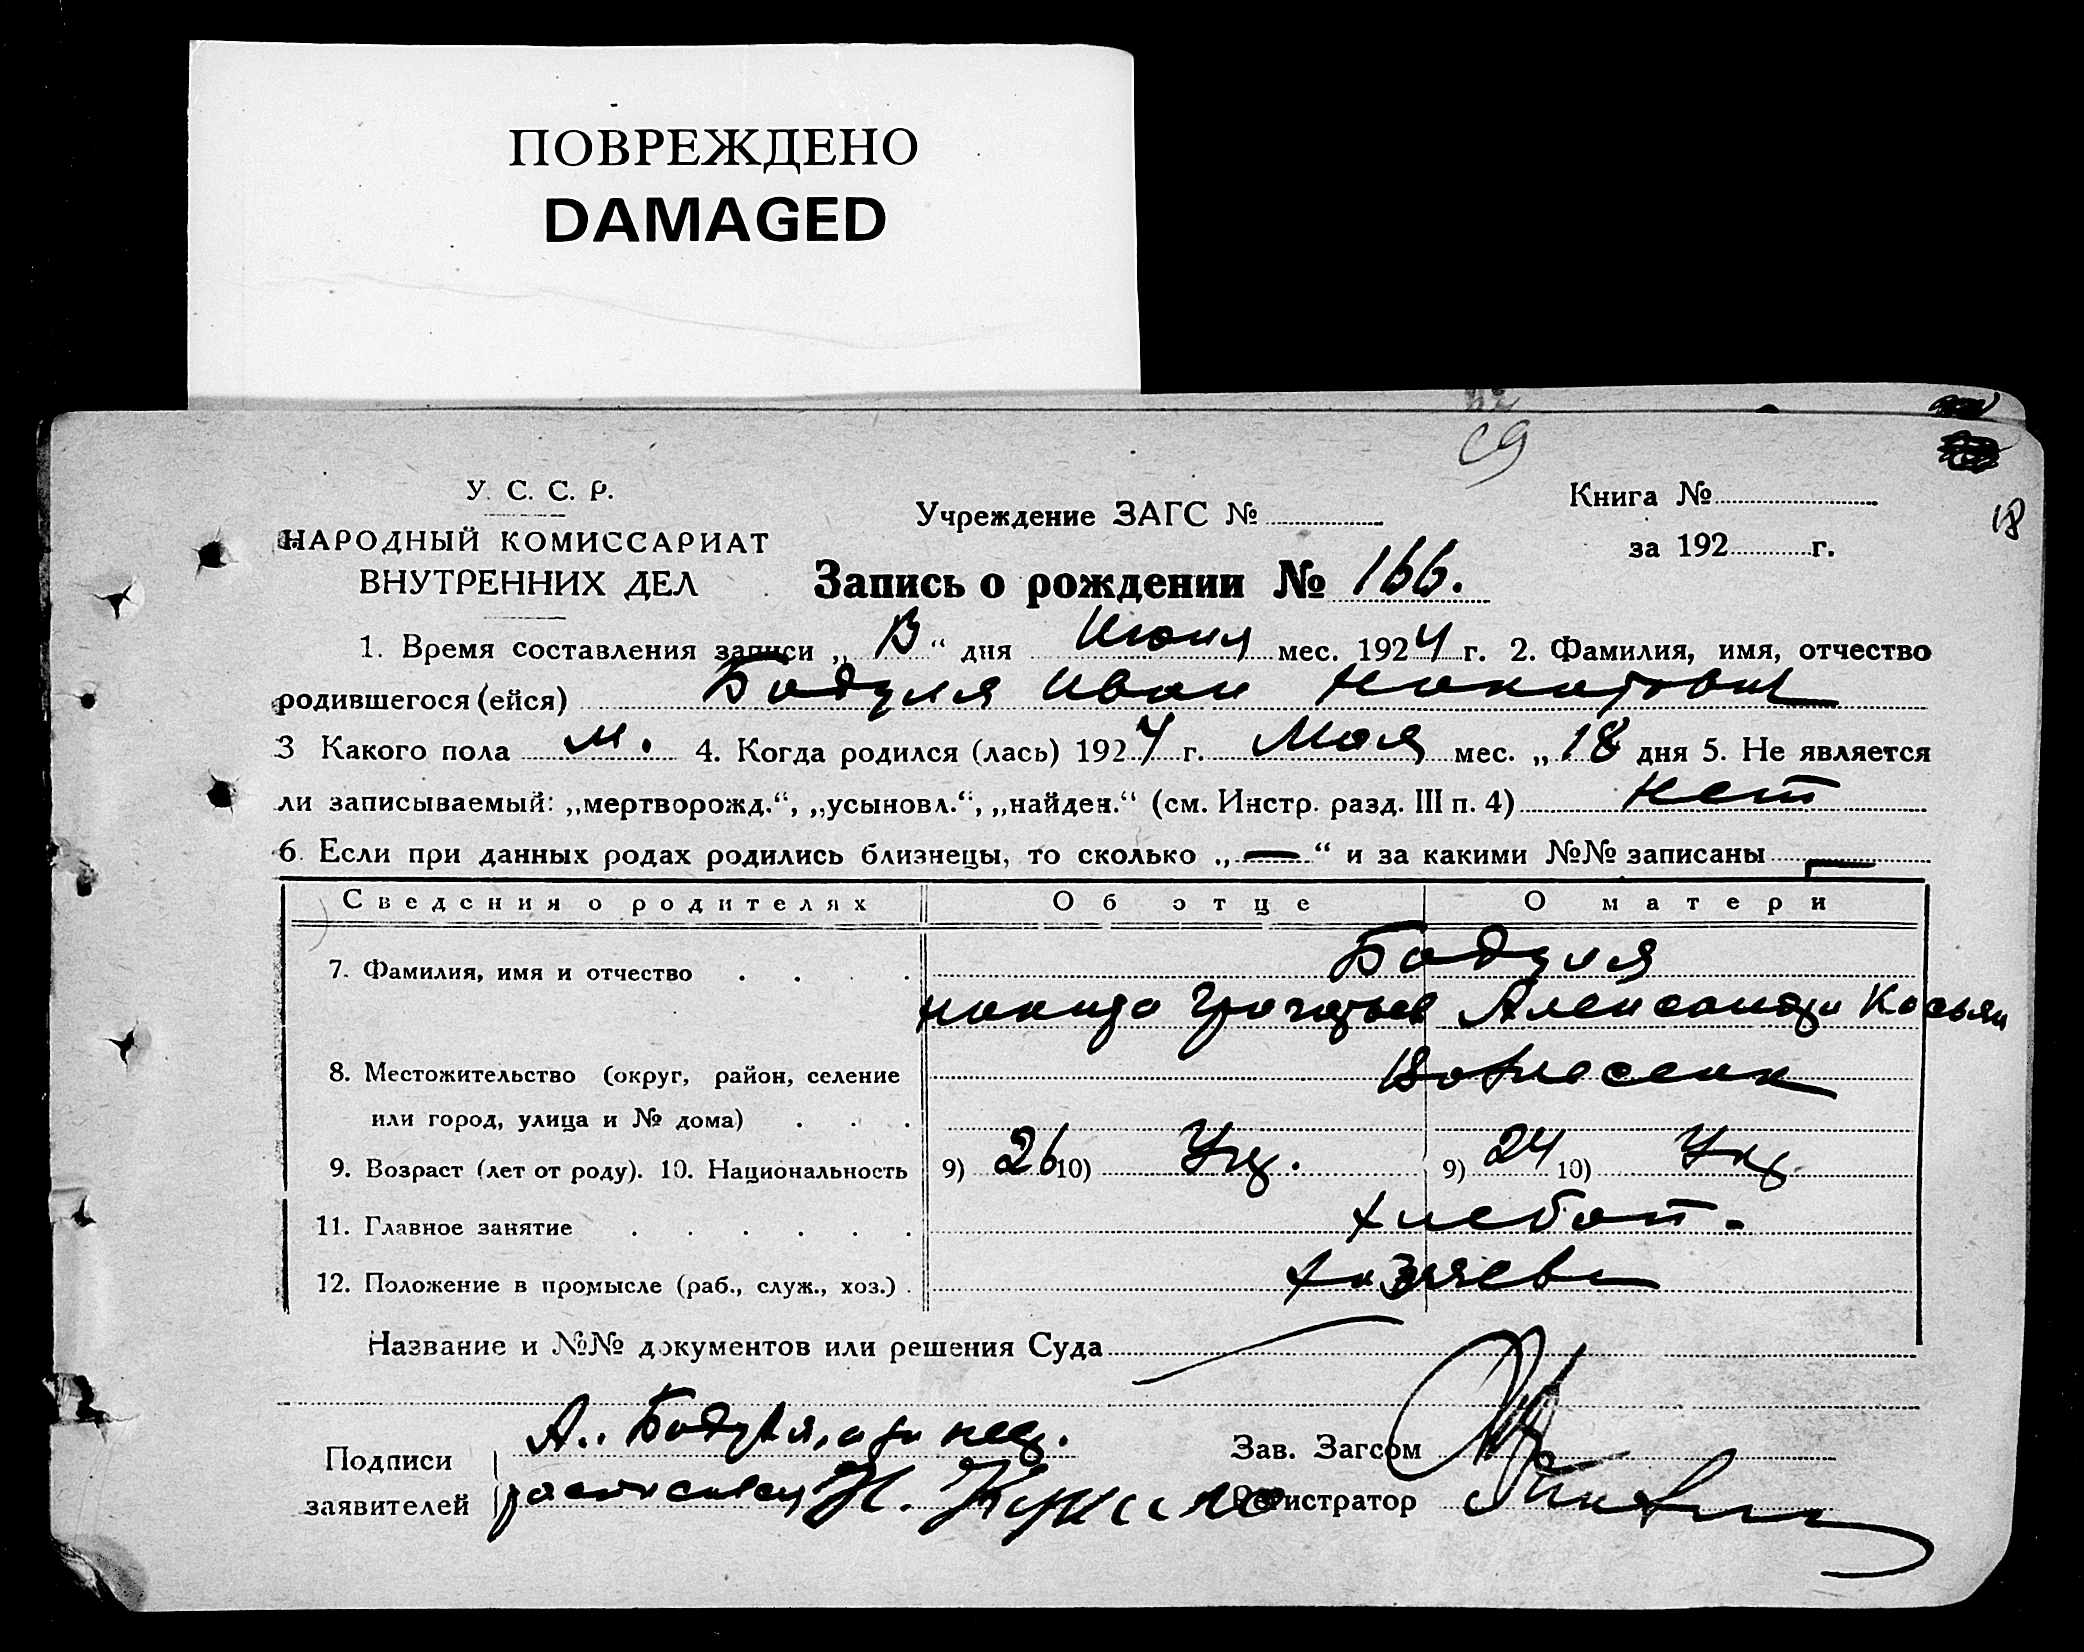 ПОВРЕЖДЕНО
DAMAGED
69
18
У. С. С. Р.
НАРОДНЫЙ КОМИССАРИАТ
ВНУТРЕННИХ ДЕЛ
Учреждение ЗАГС №
Книга №
за 192 г.
Запись о рождении № 166.
1. Время составления записи „ “ дня Июня мес. 1924 г. 2. Фамилия, имя, отчество
родившегося (ейся) Бодуля Иван Никитович
3 Какого пола м. 4. Когда родился (лась) 1924 г. Мая мес. „18 дня 5. Не является
ли записываемый: „мертворожд.“, „усыновл.“, „найден.“ (см. Инстр. разд. III п. 4) нет
6. Если при данных родах родились близнецы, то сколько „—“ и за какими №№ записаны —
Сведения о родителях Об отце О матери
7. Фамилия, имя и отчество Бодуля
Никита Александра Касьян
8. Местожительство (округ, район, селение Вознесенк
или город, улица и № дома)
9. Возраст (лет от роду). 10. Национальность 9) 26 10) Укр. 9) 24 10) Укр.
11. Главное занятие хлебоп.
12. Положение в промысле (раб., служ., хоз.) хозяева
Название и №№ документов или решения Суда
Подписи А. Бодуля, Зав. Загсом
заявителей Н. Регистратор